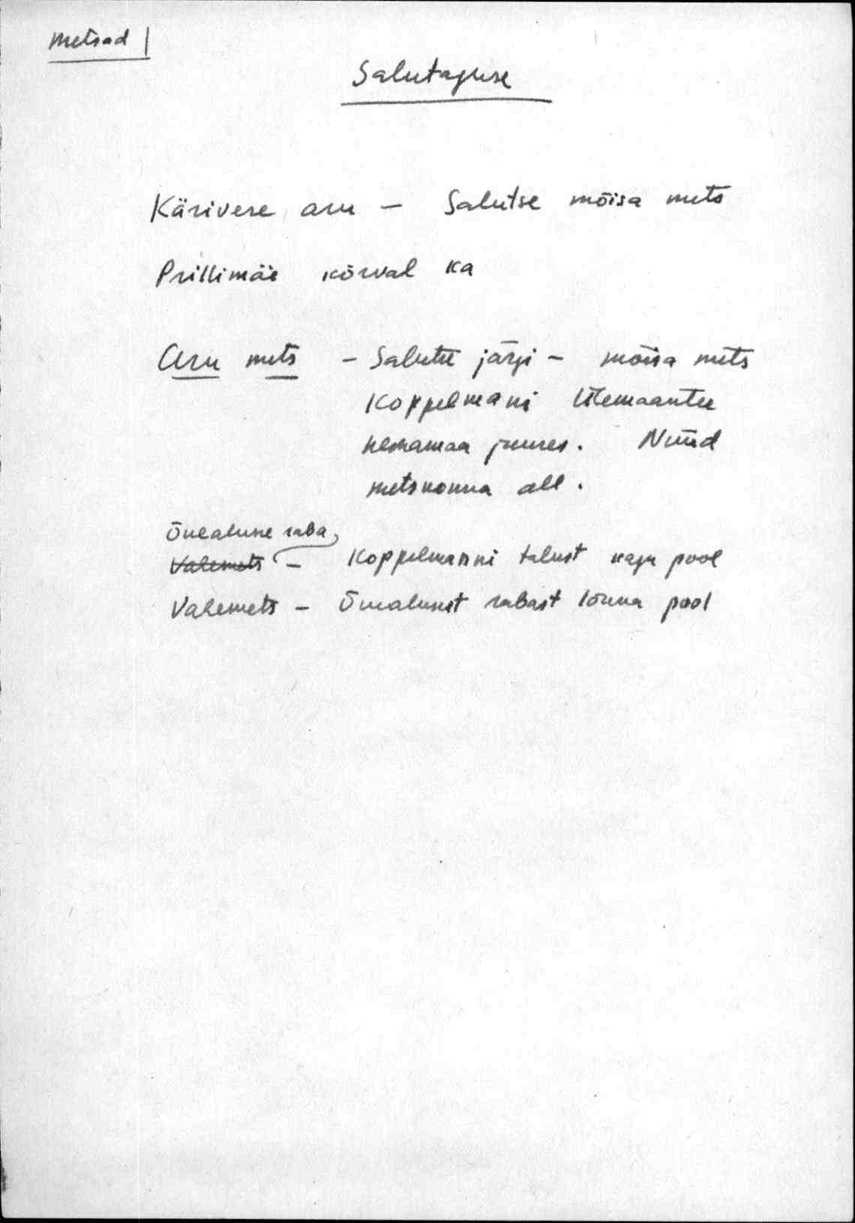 Metsad
Salutaguse
Kärivere aru – Salutse mõisa mets
Prillimäe kõrval ka
Aru mets – Salutse järgi – mõisa mets
Koppelmani
juures. Nüüd
metskonna all.
Õuealune raba
Valemets – Koppelmanni talust kagu pool
Valemets – Õuealusest rabast lõuna pool